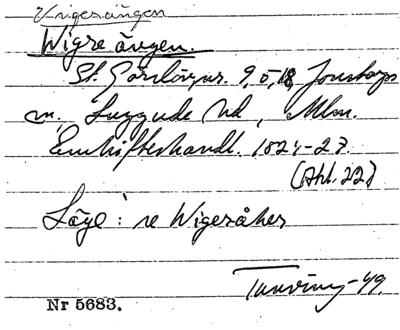 Vrigesången
Wigre ången.
St. Görslövs nr. 9, 5, 18, Jonstorps
m. Luggude hd, Mlm.
Enskifteshandl. 1824-27.
(Akt. 22)
Läge: se Wigesåker
Tunving-49.
Nr 5683.